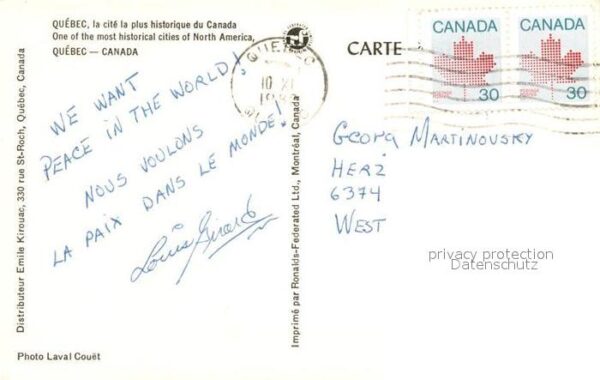 QUÉBEC, la cité la plus historique du Canada
One of the most historical cities of North America,
QUÉBEC — CANADA
CARTE
CANADA
30
CANADA
30
QUEBEC
10 XI
WE WANT
PEACE IN THE WORLD!
NOUS VOULONS
LA PAIX DANS LE MONDE!
Louis Girard
Georg Martinovsky
HERZ
6374
WEST
privacy protection
Datenschutz
Distributeur Emile Kirouac, 330 rue St-Roch, Québec, Canada
Imprimé par Ronalds-Federated Ltd., Montréal, Canada
Photo Laval Couët